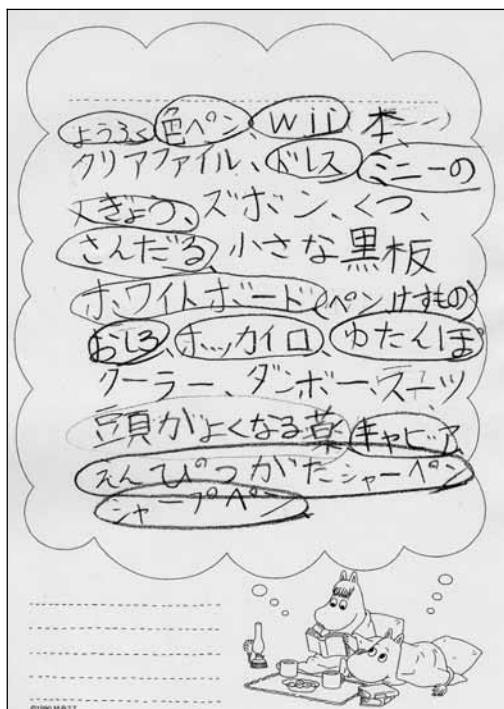 ようふく 色ペン Wii 本
クリアファイル、ドレス ミニーの
人ぎょう、ズボン、くつ、
さんだる、小さな黒板
ホワイトボード(ペンけすもの)
おしろ、ホッカイロ、ゆたんぽ
クーラー、ダンボー、スーツ
頭がよくなる薬 キャビア
えんぴつがたシャーペン
シャープペン